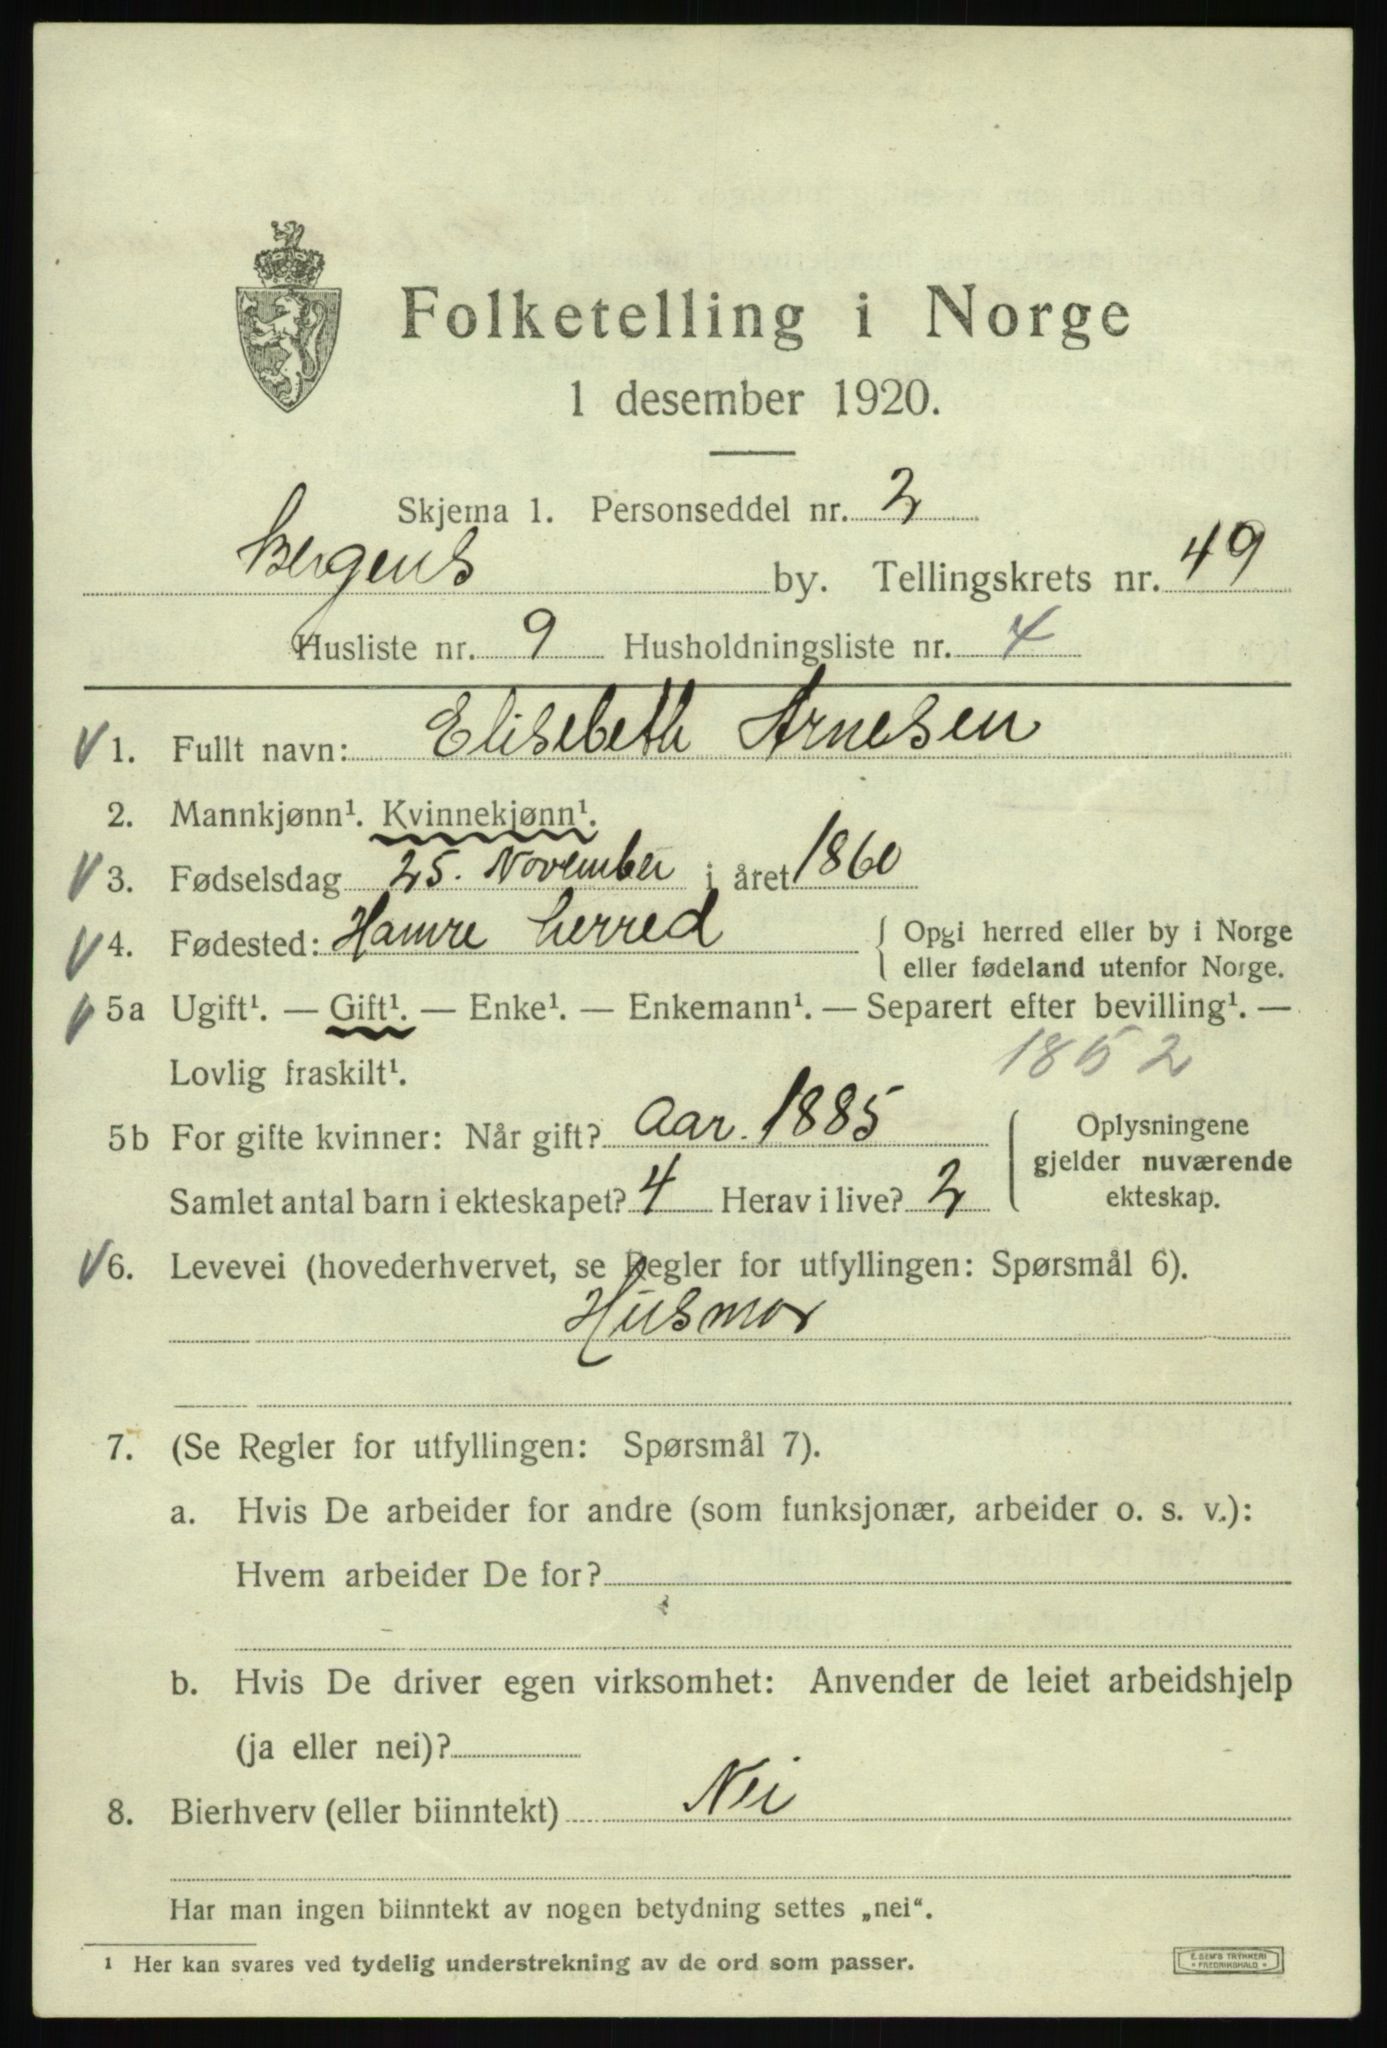 Folketelling i Norge
1 desember 1920.
Skjema 1. Personseddel nr. 2
Bergens by. Tellingskrets nr. 49
Husliste nr. 9 Husholdningsliste nr. 4
1. Fullt navn: Elisebeth Arnesen
2. Mannkjønn¹. Kvinnekjønn¹.
3. Fødselsdag 25. November i året 1860
4. Fødested: Hamre herred { Opgi herred eller by i Norge
eller fødeland utenfor Norge.
5a Ugift¹. — Gift¹. — Enke¹. — Enkemann¹. — Separert efter bevilling¹. —
Lovlig fraskilt¹. 1852
5b For gifte kvinner: Når gift? Aar. 1885
Samlet antal barn i ekteskapet? 4 Herav i live? 2
Oplysningene
gjelder nuværende
ekteskap.
6. Levevei (hovederhvervet, se Regler for utfyllingen: Spørsmål 6).
Husmor
7. (Se Regler for utfyllingen: Spørsmål 7).
a. Hvis De arbeider for andre (som funksjonær, arbeider o. s. v.):
Hvem arbeider De for?
b. Hvis De driver egen virksomhet: Anvender de leiet arbeidshjelp
(ja eller nei)?
8. Bierhverv (eller biinntekt) Nei
Har man ingen biinntekt av nogen betydning settes „nei“.
¹ Her kan svares ved tydelig understrekning av de ord som passer.
E. SEM'S TRYKKERI
FREDRIKSHALD